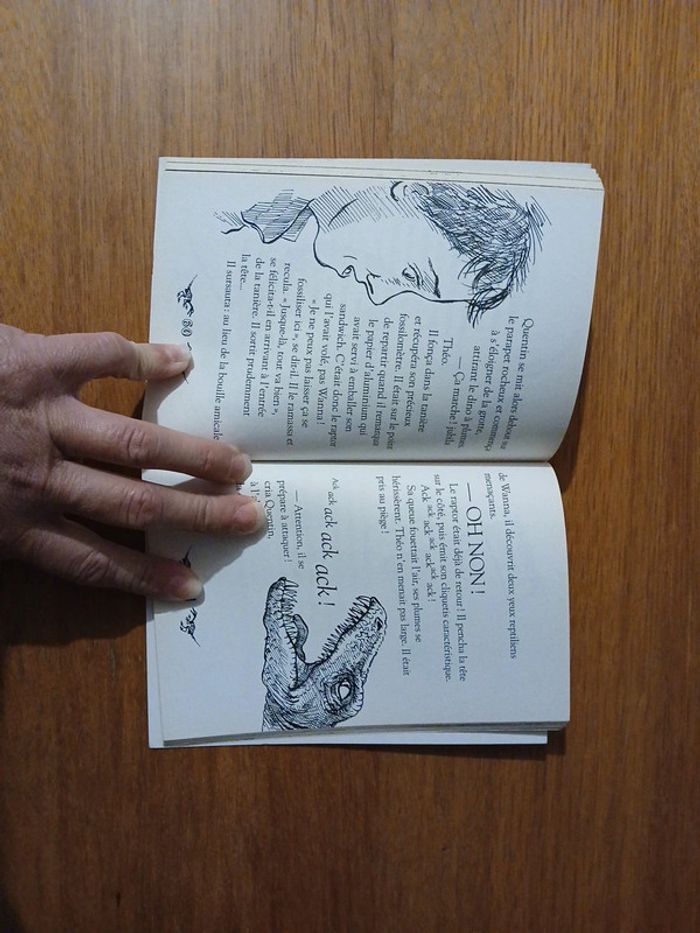 Quentin se mit alors debout su
le parapet rocheux et commença
à s'éloigner de la grotte,
attirant le dino à plumes
— Ça marche ! jubila
Théo.
Il fonça dans la tanière
et récupéra son précieux
fossilomètre. Il était sur le point
de repartir quand il remarqua
le papier d'aluminium qui
avait servi à emballer son
sandwich. C'était donc le raptor
qui l'avait volé, pas Wanna !
« Je ne peux pas laisser ça se
fossiliser ici », se dit-il. Il le ramassa et
recula. « Jusque-là, tout va bien »,
se félicita-t-il en arrivant à l'entrée
de la tanière. Il sortit prudemment
la tête...
Il sursauta : au lieu de la bouille amicale
60
de Wanna, il découvrit deux yeux reptiliens
menaçants.
— OH NON !
Le raptor était déjà de retour ! Il pencha la tête
sur le côté, puis émit son cliquetis caractéristique.
Ack ack ack ack ack ack !
Sa queue fouettait l'air, ses plumes se
hérissèrent. Théo n'en menait pas large. Il était
pris au piège !
Ack ack ack ack ack !
— Attention, il se
prépare à attaquer !
cria Quentin,